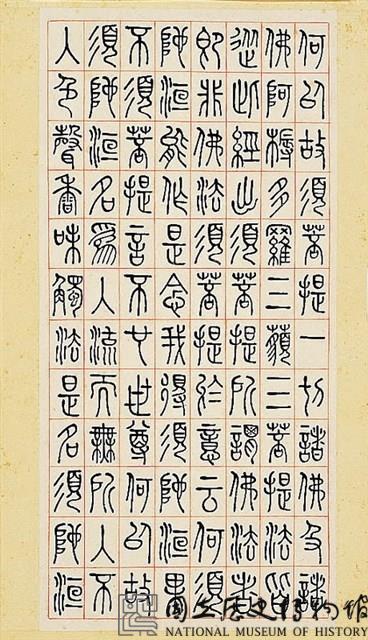 何以故須菩提一切諸佛及諸
佛阿耨多羅三藐三菩提法皆
從此經出須菩提所謂佛法者
即非佛法須菩提於意云何須
陀洹能作是念我得須陀洹果
不須菩提言不也世尊何以故
須陀洹名為入流而無所入不
入色聲香味觸法是名須陀洹
國立歷史博物館
NATIONAL MUSEUM OF HISTORY